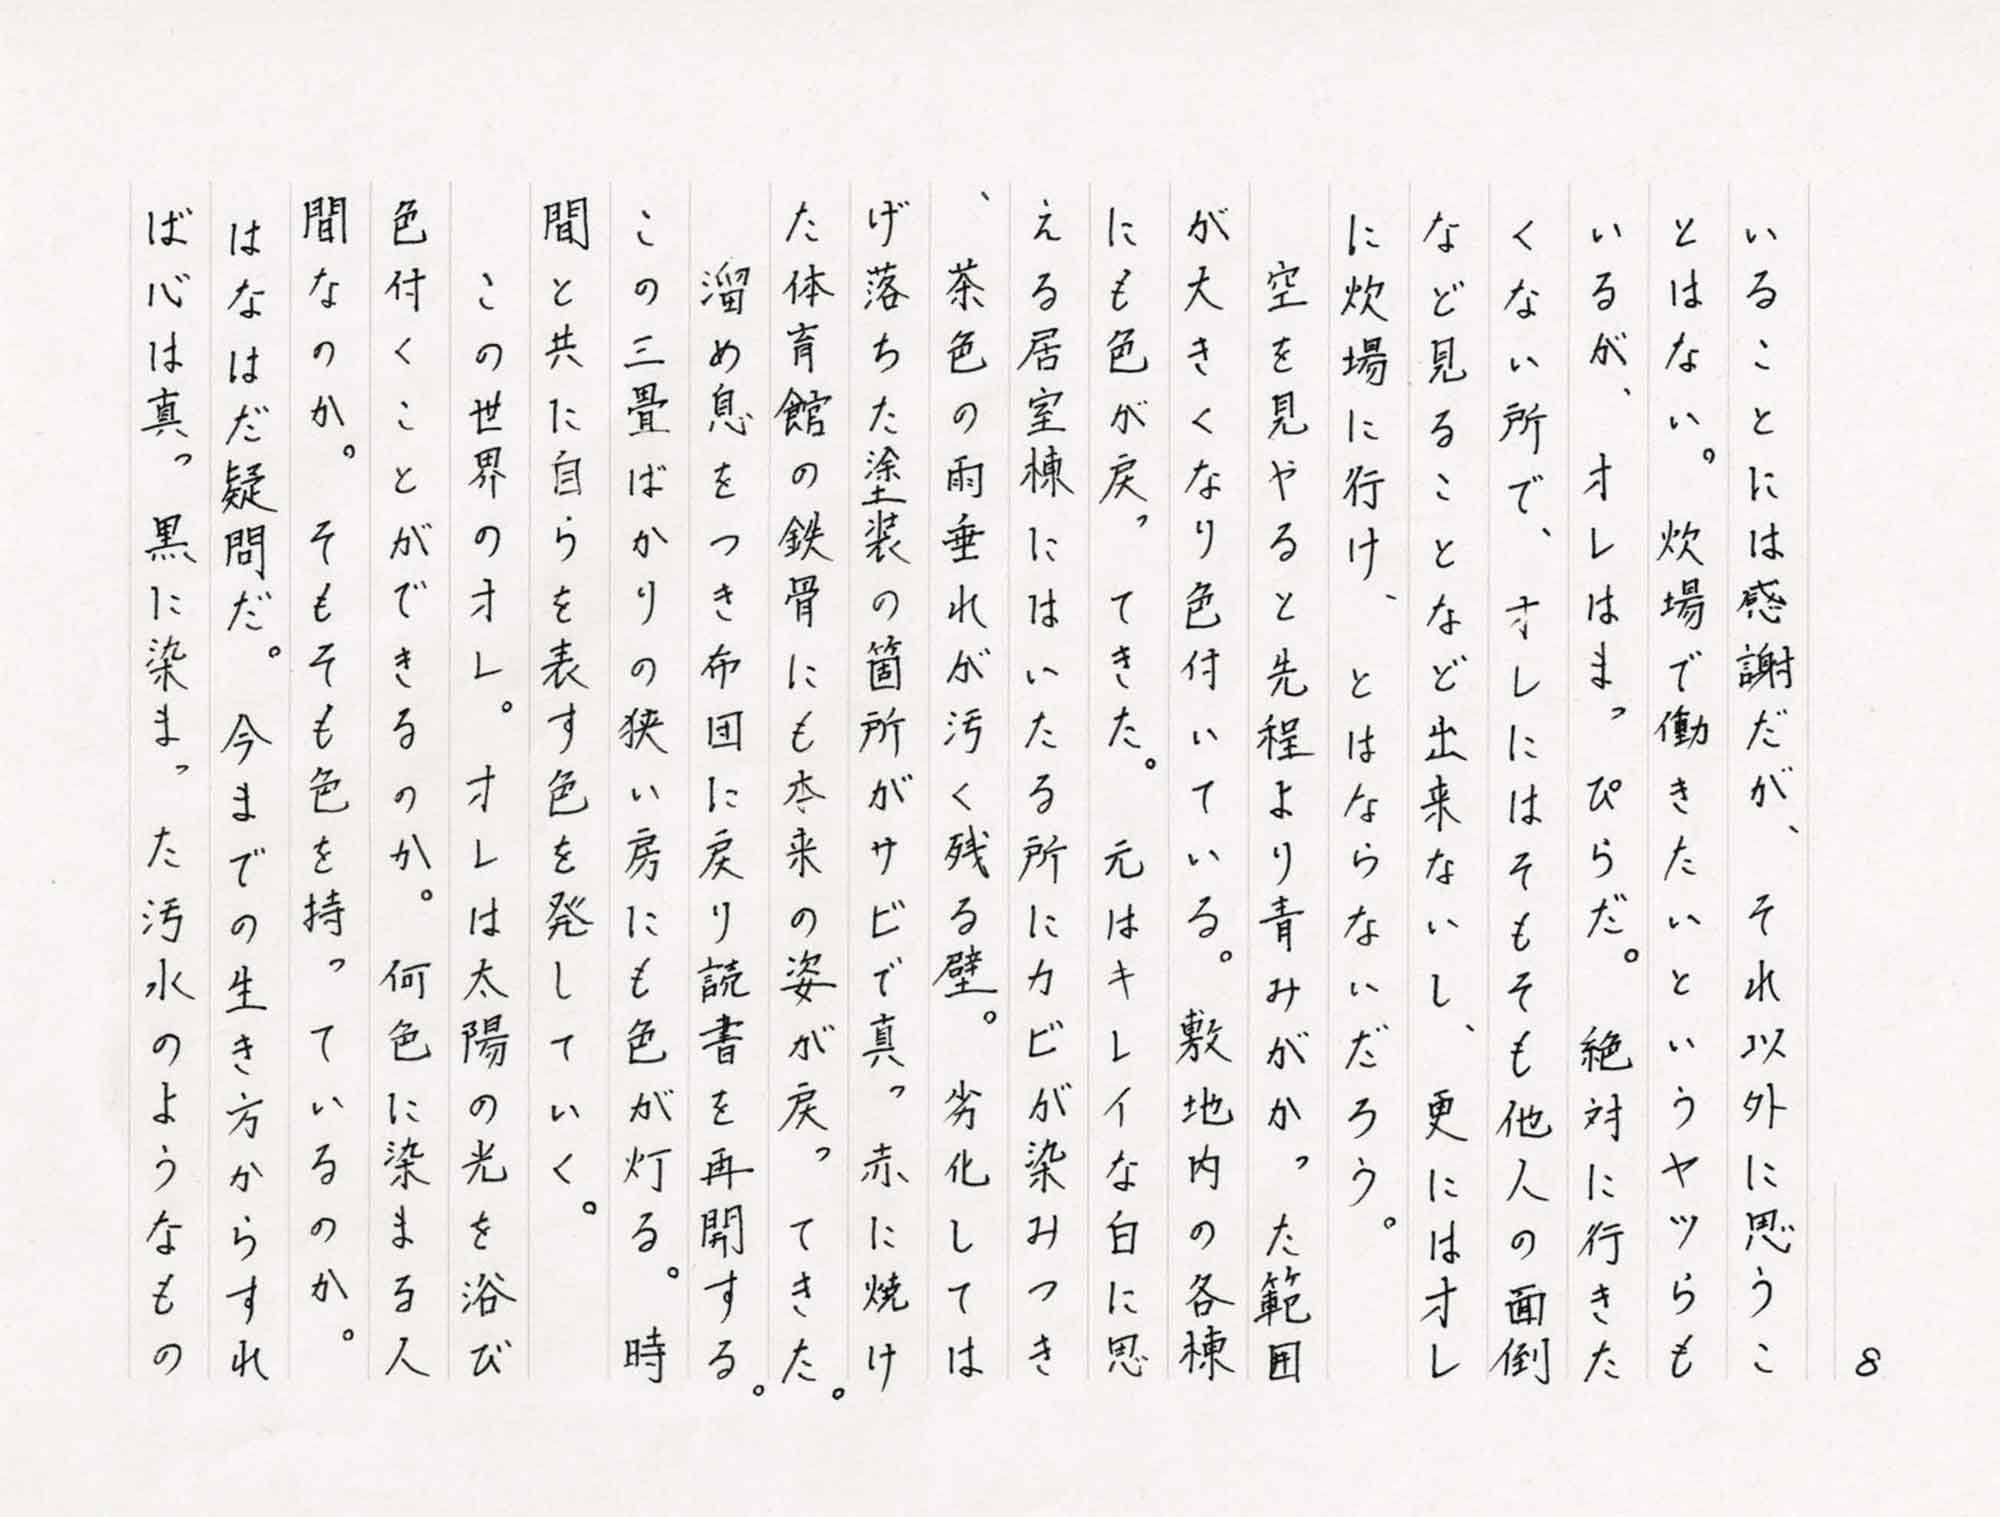 8
いることには感謝だが、それ以外に思うこ
とはない。炊場で働きたいというヤツらも
いるが、オレはまっぴらだ。絶対に行きた
くない所で、オレにはそもそも他人の面倒
など見ることなど出来ないし、更にはオレ
に炊場に行け、とはならないだろう。
空を見やると先程より青みがかった範囲
が大きくなり色付いている。敷地内の各棟
にも色が戻ってきた。元はキレイな白に思
える居室棟にはいたる所にカビが染みつき
、茶色の雨垂れが汚く残る壁。劣化しては
げ落ちた塗装の箇所がサビで真っ赤に焼け
た体育館の鉄骨にも本来の姿が戻ってきた。
溜め息をつき布団に戻り読書を再開する。
この三畳ばかりの狭い房にも色が灯る。時
間と共に自らを表す色を発していく。
この世界のオレ。オレは太陽の光を浴び
色付くことができるのか。何色に染まる人
間なのか。そもそも色を持っているのか。
はなはだ疑問だ。今までの生き方からすれ
ば心は真っ黒に染まった汚水のようなもの